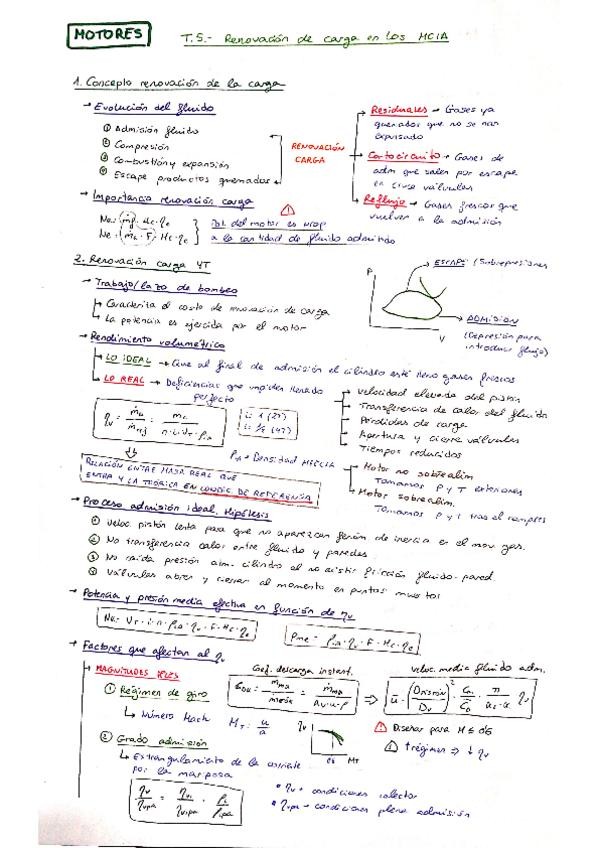 MOTORES
T.5.- Renovación de carga en los MCIA
1. Concepto renovación de la carga
→ Evolución del fluido
① Admisión fluido
② Compresión
③ Combustión y expansión
④ Escape productos quemados
RENOVACIÓN
CARGA
Residuales → Gases ya
quemados que no se han
expulsado
Cortocircuito → Gases de
adm que salen por escape
en cruce válvulas
Reflujo → Gases frescos que
vuelven a la admisión
→ Importancia renovación carga
Ne = ṁf · Hc · ηe
Ne = ṁa · F · Hc · ηe
del motor es prop
a la cantidad de fluido admitido
2. Renovación carga 4T
→ Trabajo/lazo de bombeo
↳ Caracteriza el costo de renovación de carga
↳ La potencia es ejercida por el motor
P
V
ESCAPE (Sobrepresiones
ADMISIÓN
(Depresión para
introducir flujo)
→ Rendimiento volumétrico
LO IDEAL → Que al final de admisión el cilindro esté lleno gases frescos
LO REAL → Deficiencias que impiden llenado
perfecto
Velocidad elevada del pistón
Transferencia de calor del fluido
Pérdidas de carga
Apertura y cierre válvulas
Tiempos reducidos
i = 1 (2T)
i = 1/2 (4T)
RELACIÓN ENTRE MASA REAL QUE
ENTRA Y LA TEÓRICA EN CONDIC. DE REFERENCIA
Densidad MEZCLA
Motor no sobrealim
Tomamos P y T exteriores
Motor sobrealim.
Tomamos P y T tras el compres
→ Proceso admisión ideal. Hipótesis
① Veloc. pistón lenta para que no aparezcan fenóm de inercia en el mov. gas.
② No transferencia calor entre fluido y paredes
③ No caída presión adm. cilindro al no existir fricción fluido-pared
④ Válvulas abren y cierran al momento en puntos muertos
→ Potencia y presión media efectiva en función de ηv
Ne = VT · i · n · ρa · ηv · F · Hc · ηe
pme = ρa · ηv · F · Hc · ηe
→ Factores que afectan al ηv
Coef. descarga instant.
veloc. media fluido adm.
① Régimen de giro
↳ Número Mach
⚠ Diseñar para M ≤ 0'6
⚠ ↑ régimen ⇒ ↓ ηv
② Grado admisión
↳ Estrangulamiento de la corriente
por la mariposa
* ηv → condiciones colector
* ηvpa → condiciones plena admisión